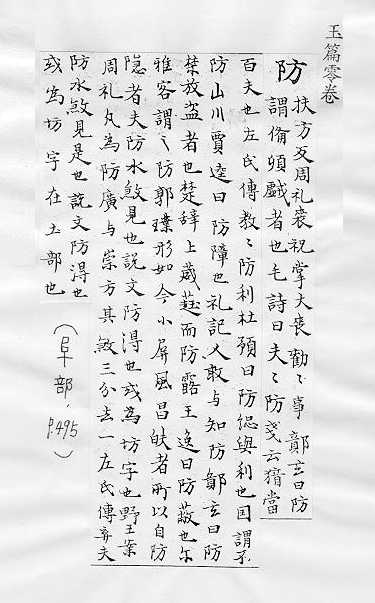 玉篇零卷
防
扶方反周礼喪祝掌大喪勸〻事鄭玄曰防
謂備傾戱者也毛詩曰夫〻防箋云猶當
百夫也左氏傳教〻防利杜預曰防惡與利也国謂不
防山川賈逵曰防障也礼記人敢与知防鄭玄曰防
禁放盗者也楚辞上葴而防露王逸曰防蔽也尔
雅容謂之防郭璞形如今小屏風昌者所以自防
隐者夫防水煞見也說文防得也或為坊字也野王案
周礼凡為防廣与崇方其煞三分去一左氏傳弃夫
防水煞見是也說文防得也
或為坊字在土部也
(阜部, p.495)